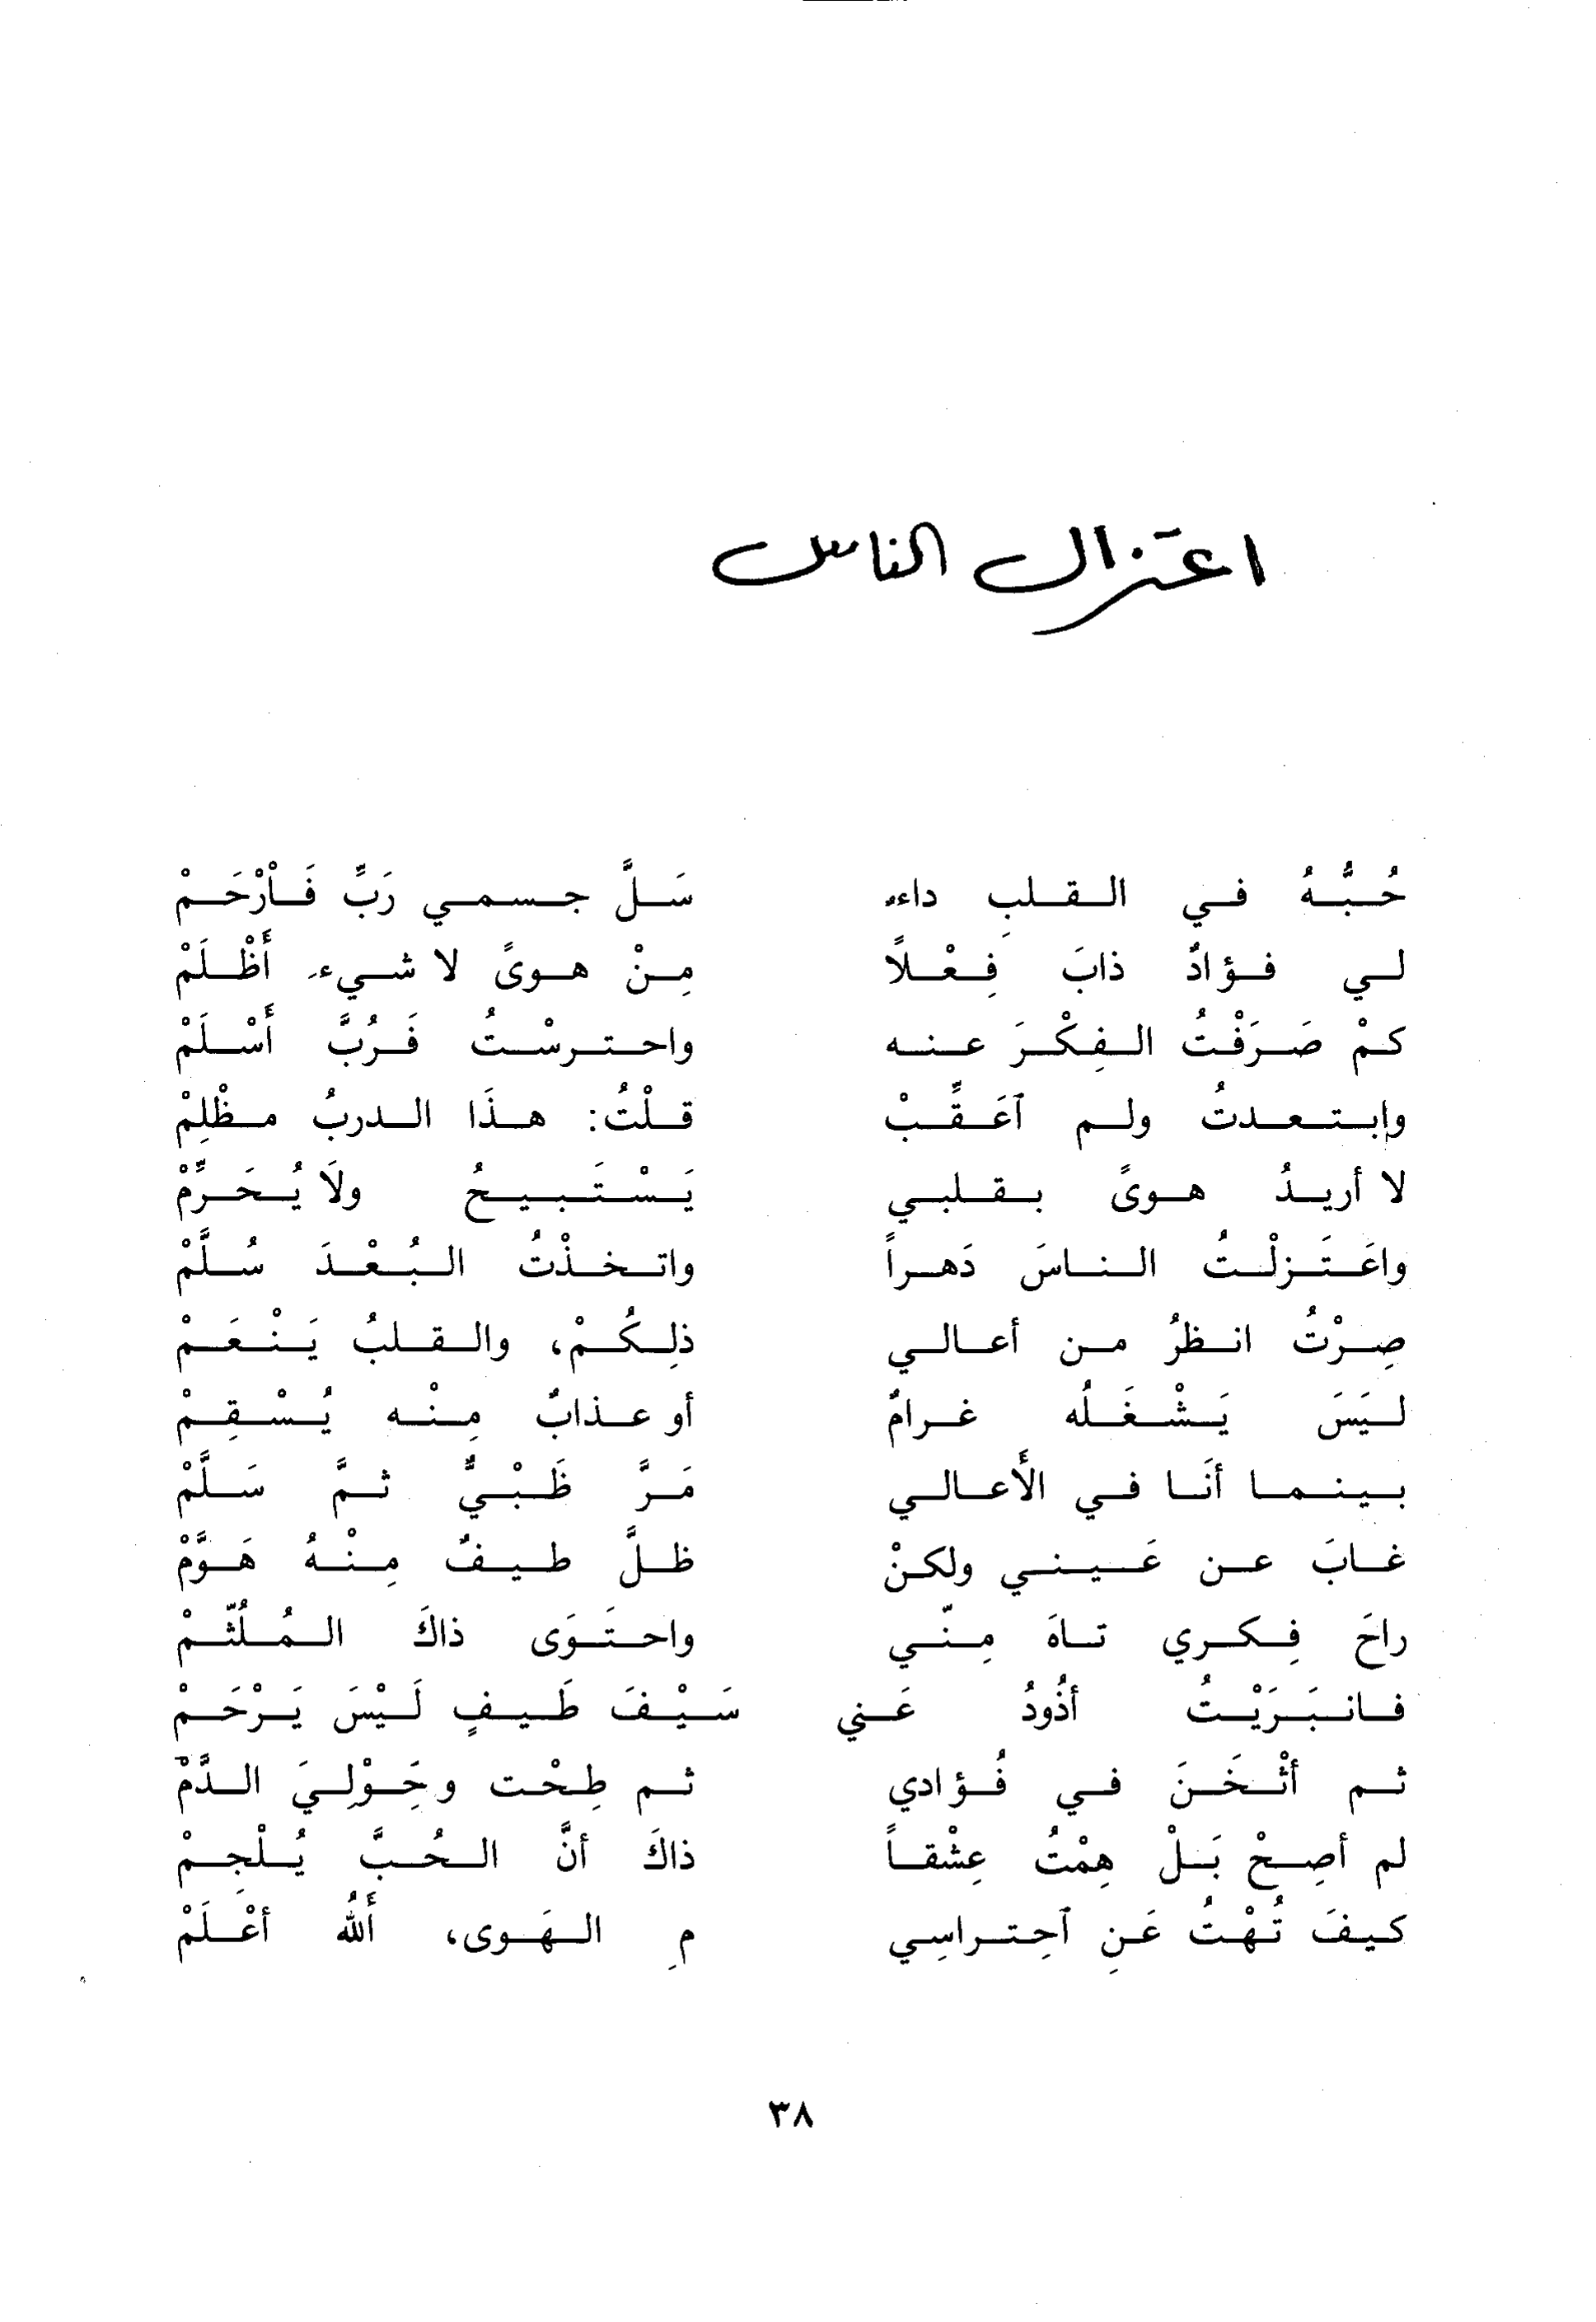 اعتزال الناس
حُبُّهُ في القلبِ داءٌ سَلَّ جسمي رَبِّ فَاْرْحَمْ
لي فؤادٌ ذابَ فِعْلاً مِنْ هوىً لا شيءَ أَظْلَمْ
كمْ صَرَفْتُ الفِكْرَ عنه واحترسْتُ فَرُبَّ أَسْلَمْ
وإبتعدتُ ولم آعَقِّبْ قلْتُ: هذَا الدربُ مظْلِمْ
لا أريدُ هوىً بقلبي يَسْتَبيحُ ولَا يُحَرِّمْ
واعَتَزلْتُ الناسَ دَهراً واتخذْتُ البُعْدَ سُلَّمْ
صِرْتُ انظرُ من أعالي ذلِكُمْ، والقلبُ يَنْعَمْ
ليَسَ يَشْغَلُه غرامٌ أو عذابٌ مِنْه يُسْقِمْ
بينما أنَا في الأَعالي مَرَّ ظَبْيٌّ ثمَّ سَلَّمْ
غابَ عن عَيني ولكنْ ظلَّ طيفٌ مِنْهُ هَوَّمْ
راحَ فِكري تاهَ مِنّي واحتَوَى ذاكَ المُلُثّمْ
فانبَرَيْتُ أذُودُ عَني سَيْفَ طَيفٍ لَيْسَ يَرْحَمْ
ثم أثْخَنَ في فُؤادي ثم طِحْت وحَوْلِيَ الدَّمْ
لم أصِحْ بَلْ هِمْتُ عِشْقاً ذاكَ أنَّ الحُبَّ يُلْجِمْ
كيفَ تُهْتُ عَنِ آحِتراسِي مِ الهَوى، أَللهُ أعْلَمْ
٣٨